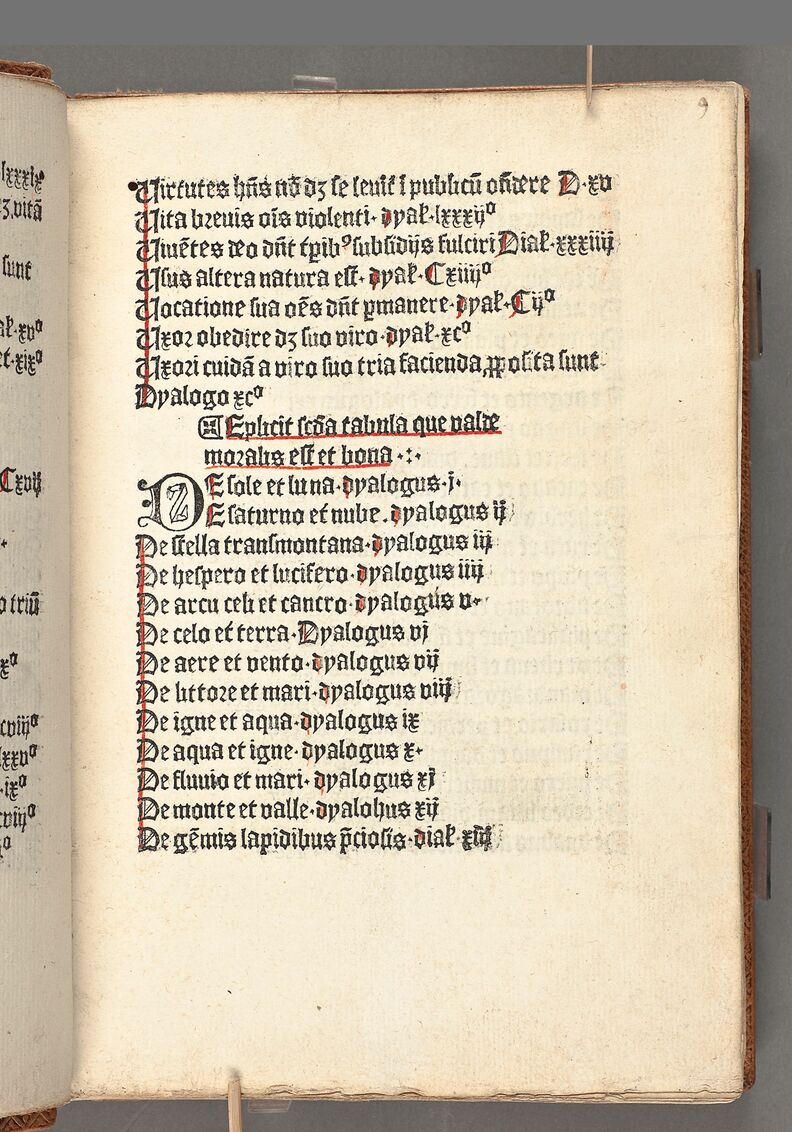 9
lxxxixº
ʒ.vitā
sunt
aƚ.xvº
et.xixº
Cxvij
o triū
xº
cviijº
lxxvº
.ixº
cviijº
Virtutes hn̄s nō dʒ se leuit̄ ī publicū on̄dere D.xv
Vita breuis oīs violenti. dyaƚ.lxxxijº
Viuētes deo dn̄t tp̄ibꝰ subsidijs fulciri Diaƚ.xxxiiij
Vsus altera natura est. dyaƚ.Cxiiijº
Vocatione sua oēs dn̄t ꝑmanere.dyaƚ.Cijº
Vxor obedire dʒ suo viro.dyaƚ.xcº
Vxori cuidā a viro suo tria facienda ꝓposita sunt
Dyalogo xcº
Eplicit scd̄a tabula que valde
moralis est et bona .:.
DE sole et luna.dyalogus.j.
E saturno et nube.dyalogus ij
De stella transmontana.dyalogus iij
De hespero et lucifero.dyalogus iiij
De arcu celi et cancro.dyalogus v.
De celo et terra.Dyalogus vj
De aere et vento.dyalogus vij
De littore et mari.dyalogus viij
De igne et aqua.dyalogus ix
De aqua et igne.dyalogus x.
De fluuio et mari.dyalogus xj
De monte et valle.dyalohus xij
De gēmis lapidibus p̄ciosis.diaƚ xiij